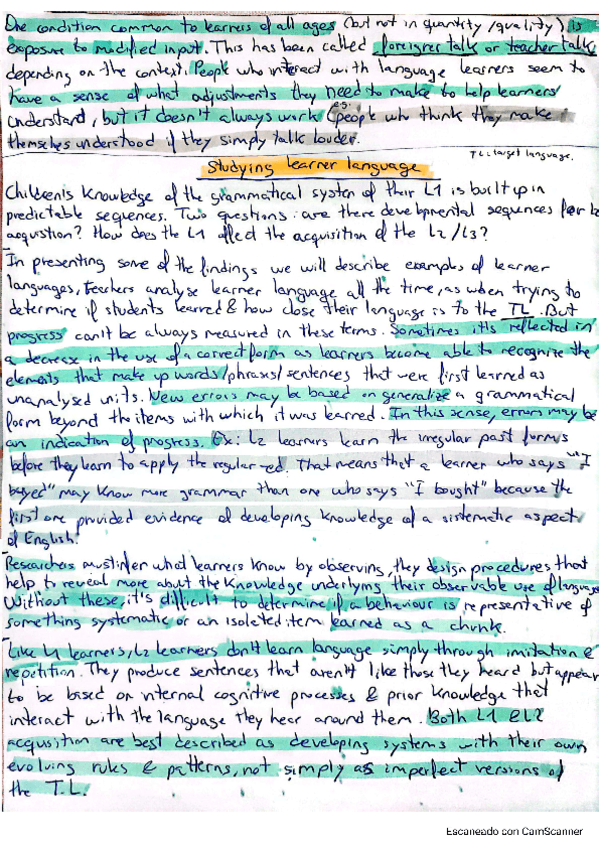 One condition common to learners of all ages (but not in quantity/quality) is
exposure to modified input. This has been called foreigner talk or teacher talk
depending on the context. People who interact with language learners seem to
have a sense of what adjustments they need to make to help learners
understand, but it doesn't always work (e.g. people who think they make
themselves understood if they simply talk louder.
TL: target language.
Studying learner language
Children's knowledge of the grammatical system of their L1 is built up in
predictable sequences. Two questions: are there developmental sequences for L2
acquistion? How does the L1 affect the acquisition of the L2/L3?
In presenting some of the findings we will describe examples of learner
languages, teachers analyse learner language all the time, as when trying to
determine if students learned & how close their language is to the TL. But
progress can't be always measured in these terms. Sometimes it's reflected in
a decrease in the use of a correct form as learners become able to recognize the
elements that make up words/phrases/sentences that were first learned as
unanalysed units. New errors may be based on generalize a grammatical
form beyond the items with which it was learned. In this sense, errors may be
an indication of progress. Ex: L2 learners learn the irregular past forms
before they learn to apply the regular -ed. That means that a learner who says "I
buyed" may know more grammar than one who says "I bought" because the
first one provided evidence of developing knowledge of a sistematic aspect
of English.
Researchers must infer what learners know by observing, they design procedures that
help to reveal more about the knowledge underlying their observable use of language
Without these, it's difficult to determine if a behaviour is representative of
something systematic or an isolated item learned as a chunk.
Like L1 learners, L2 learners don't learn language simply through imitation &
repetition. They produce sentences that aren't like those they heard but appear
to be based on internal cognitive processes & prior knowledge that
interact with the language they hear around them. Both L1 & L2
acquisition are best described as developing systems with their own
evolving rules & patterns, not simply as imperfect versions of
the T.L.
Escaneado con CamScanner